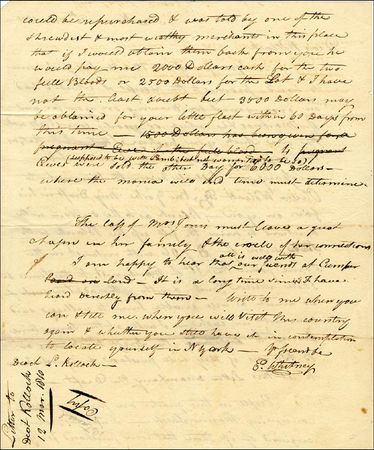 could be repurchased & was told by one of the
shrewdest & most wealthy merchants in this place
that if I would obtain them back from you he
would pay me 2000 Dollars cash for the two
full Bloods or 2500 Dollars for the Lot & I have
not the least doubt but 3500 Dollars may
be obtained for your little flock within 60 days from
this time — 1500 Dollars has been given for a
pregnant Ewe of the full blood — 4 pregnant
(supposed to be with lamb; but not warranted to be so)
Ewes were sold the other Day for 6000 Dollars —
where the mania will end time must determine —
The loss of Mrs Jones must leave a great
chasm in her family & the circle of her connections
I am happy to hear that all is well with our friends at
on land — It is a long time since I have
heard directly from them — Write to me when you
can & tell me when you will visit this country
again & whether you still have it in contemplation
to locate yourself in N York —
E. Whitney
Deact L. Kollock —
Copy
Letter to
Deact Kollock
12 Mar. 1810